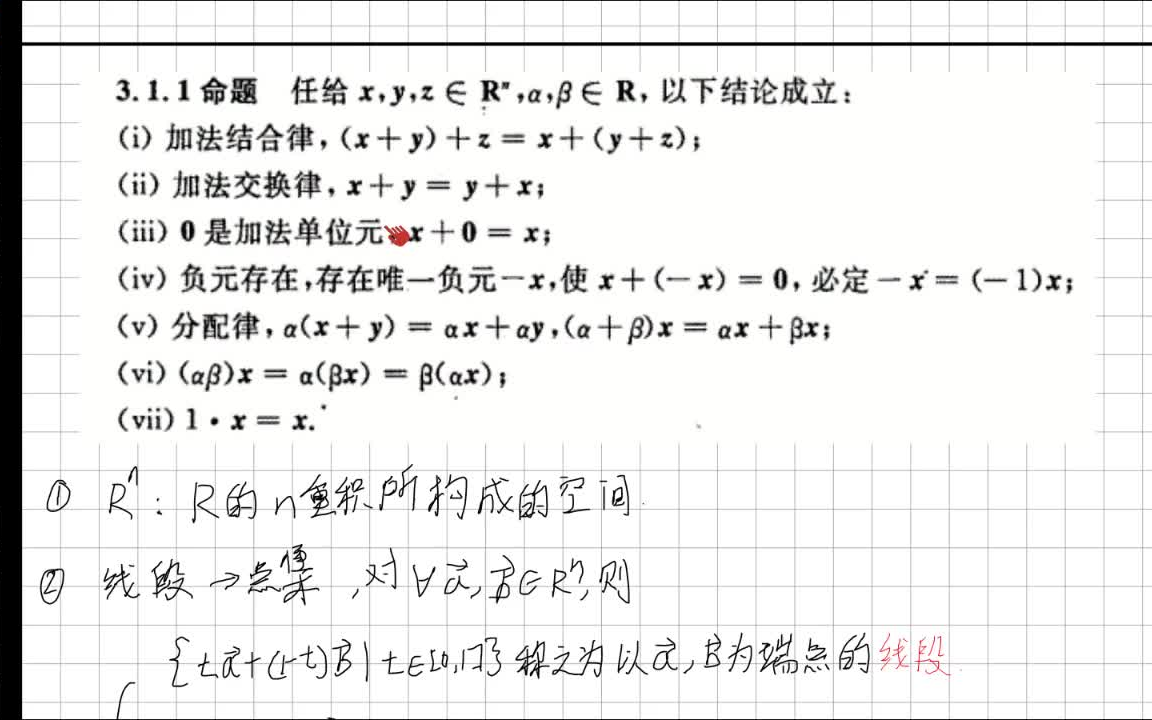 3.1.1 命题 任给 x,y,z ∈ Rⁿ,α,β ∈ R, 以下结论成立:
(i) 加法结合律, (x + y) + z = x + (y + z);
(ii) 加法交换律, x + y = y + x;
(iii) 0 是加法单位元 x + 0 = x;
(iv) 负元存在,存在唯一负元 − x,使 x + (− x) = 0, 必定 − x = (− 1)x;
(v) 分配律, α(x + y) = αx + αy,(α + β)x = αx + βx;
(vi) (αβ)x = α(βx) = β(αx);
(vii) 1 • x = x.
① Rⁿ: R的n重积所构成的空间.
② 线段 → 点集, 对∀a⃗, b⃗∈Rⁿ, 则
{ta⃗+(1-t)b⃗ | t∈[0,1]} 称之为以a⃗, b⃗为端点的线段.